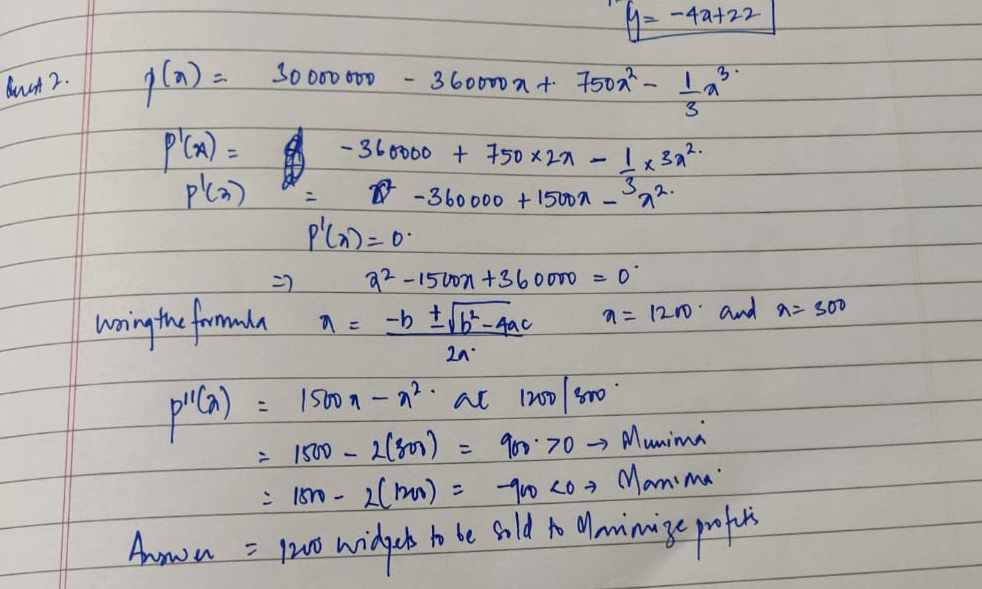 y = -4x+22
Quest 2. p(x) = 30000000 - 360000x + 750x² - 1/3 x³.
p'(x) = -360000 + 750×2x - 1/3 × 3x².
p'(x) = -360000 + 1500x - x².
p'(x) = 0.
=> x² - 1500x + 360000 = 0
Using the formula x = -b ± √b²-4ac / 2a. x = 1200. and x = 300
p''(x) = 1500x - x². at 1200/300.
= 1500 - 2(300) = 900. >0 → Minima
= 1500 - 2(1200) = -900 <0 → Maxima.
Answer = 1200 widgets to be sold to Maximize profits